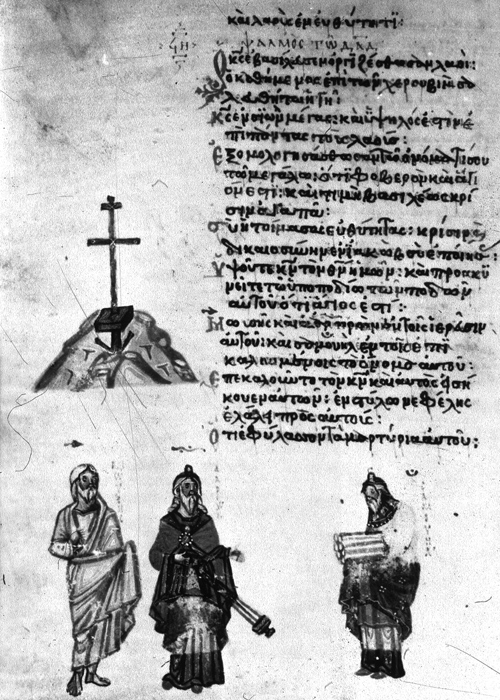 καὶ λαοὺς ἐν εὐθύτητι:
ϟη ψαλμὸς τῷ δαδ
Ὁ κς ἐβασίλευσεν ὀργιζέσθωσαν λαοί:
ὁ καθήμενος ἐπὶ τῶν χερουβὶμ σα
λευθήτω ἡ γῆ:
Κς ἐν σιὼν μέγας: καὶ ὑψηλός ἐστιν ἐ
πὶ πάντας τοὺς λαούς:
Ἐξομολογησάσθωσαν τῷ ὀνόματί σου
τῷ μεγάλῳ: ὅτι φοβερὸν καὶ ἅγι
όν ἐστι: καὶ τιμὴ βασιλέως κρί
σιν ἀγαπᾷ:
Σὺ ἡτοίμασας εὐθύτητας: κρίσιν καὶ
δικαιοσύνην ἐν ἰακὼβ σὺ ἐποίησας:
Ὑψοῦτε κν τὸν θν ἡμῶν: καὶ προσκυ
νεῖτε τῷ ὑποποδίῳ τῶν ποδῶν
αὐτοῦ ὅτι ἅγιός ἐστι:
Μωυσῆς καὶ ἀαρὼν ἐν τοῖς ἱερεῦσιν
αὐτοῦ: καὶ σαμουὴλ ἐν τοῖς ἐπι
καλουμένοις τὸ ὄνομα αὐτοῦ:
Ἐπεκαλοῦντο τὸν κν καὶ αὐτὸς εἰσή
κουεν αὐτῶν: ἐν στύλῳ νεφέλης
ἐλάλει πρὸς αὐτούς:
Ὅτι ἐφύλασσον τὰ μαρτύρια αὐτοῦ: